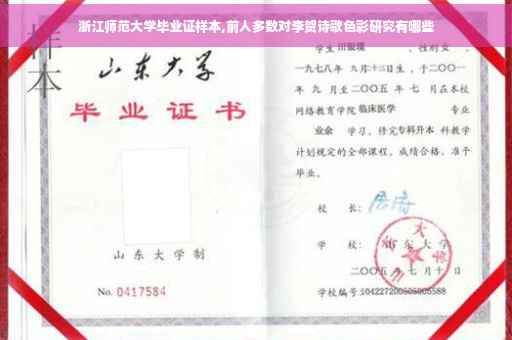 浙江师范大学毕业证样本,前人多数对李贺诗歌色彩研究有哪些
样本
山东大学
毕业证书
山东大学制
No. 0417584
学生 性别女,
一九七八年 九月十三日生,于二〇〇一
年 九 月至二〇〇五 年 七 月在本校
网络教育学院 临床医学 专业
业余 学习,修完专科升本 科教学
计划规定的全部课程,成绩合格,准予
毕业。
校 长:
学 校: 山东大学
二〇〇五 年 七 月 十 日
学校编号: